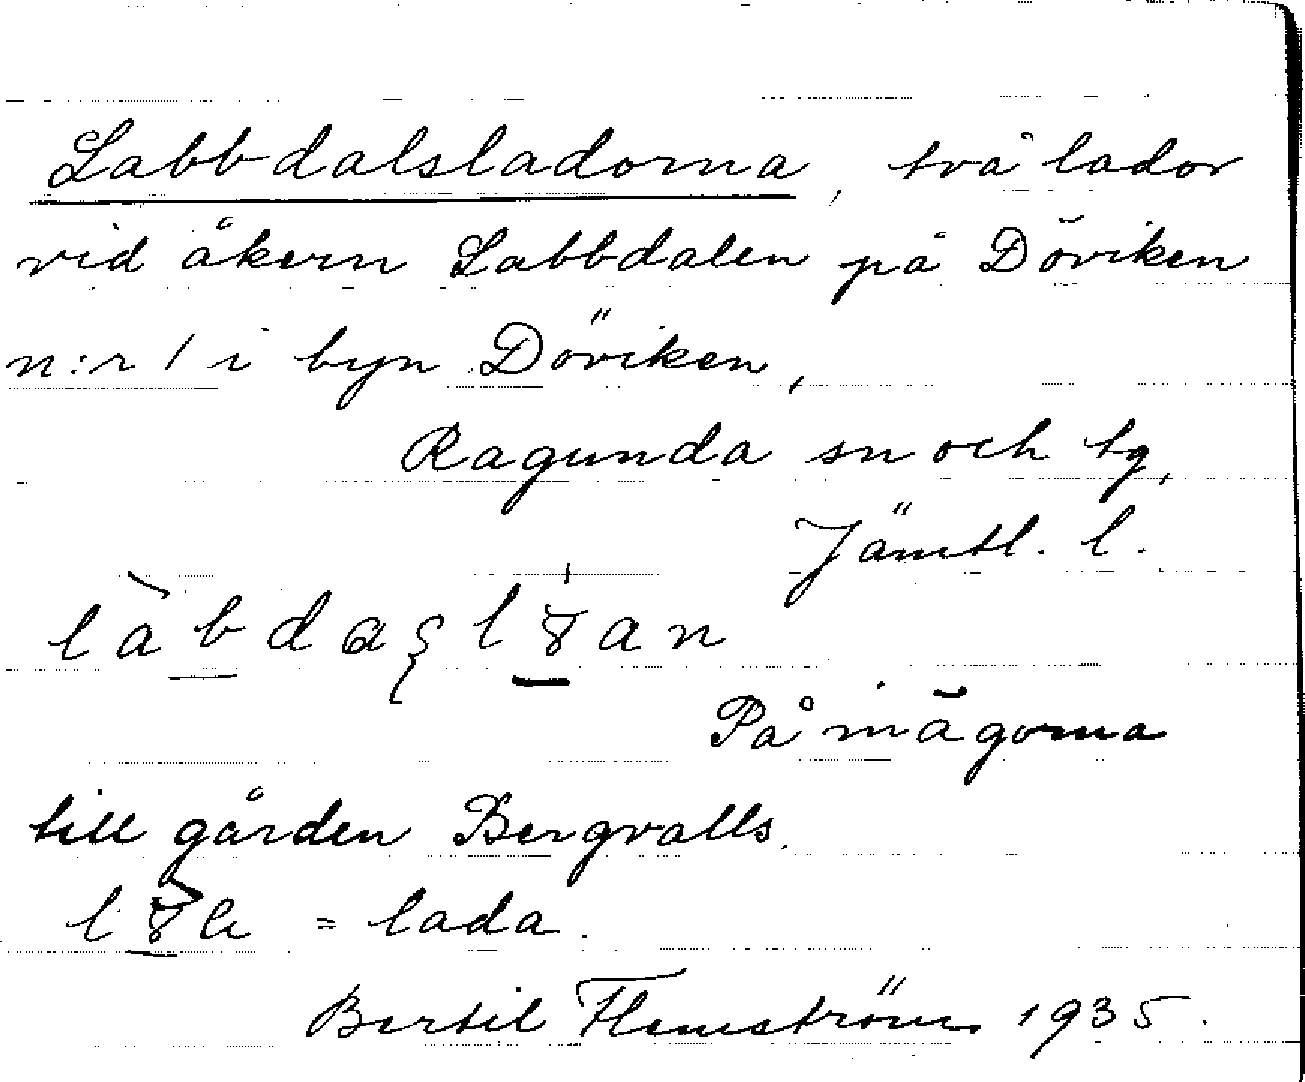 Labbdalsladorna, två lador
vid åkern Labbdalen på Döviken
n:r 1 i byn Döviken,
Ragunda sn och tg,
Jämtl. l.
På inägorna
till gården Bergvalls.
= lada.
Bertil Flemström 1935.